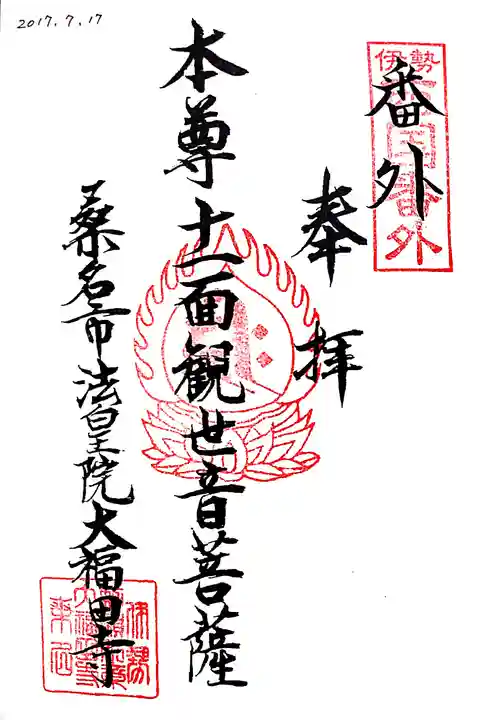 2017.7.17
伊勢
西国番外
番外
奉拝
本尊十一面観世音菩薩
桑名市法皇院大福田寺